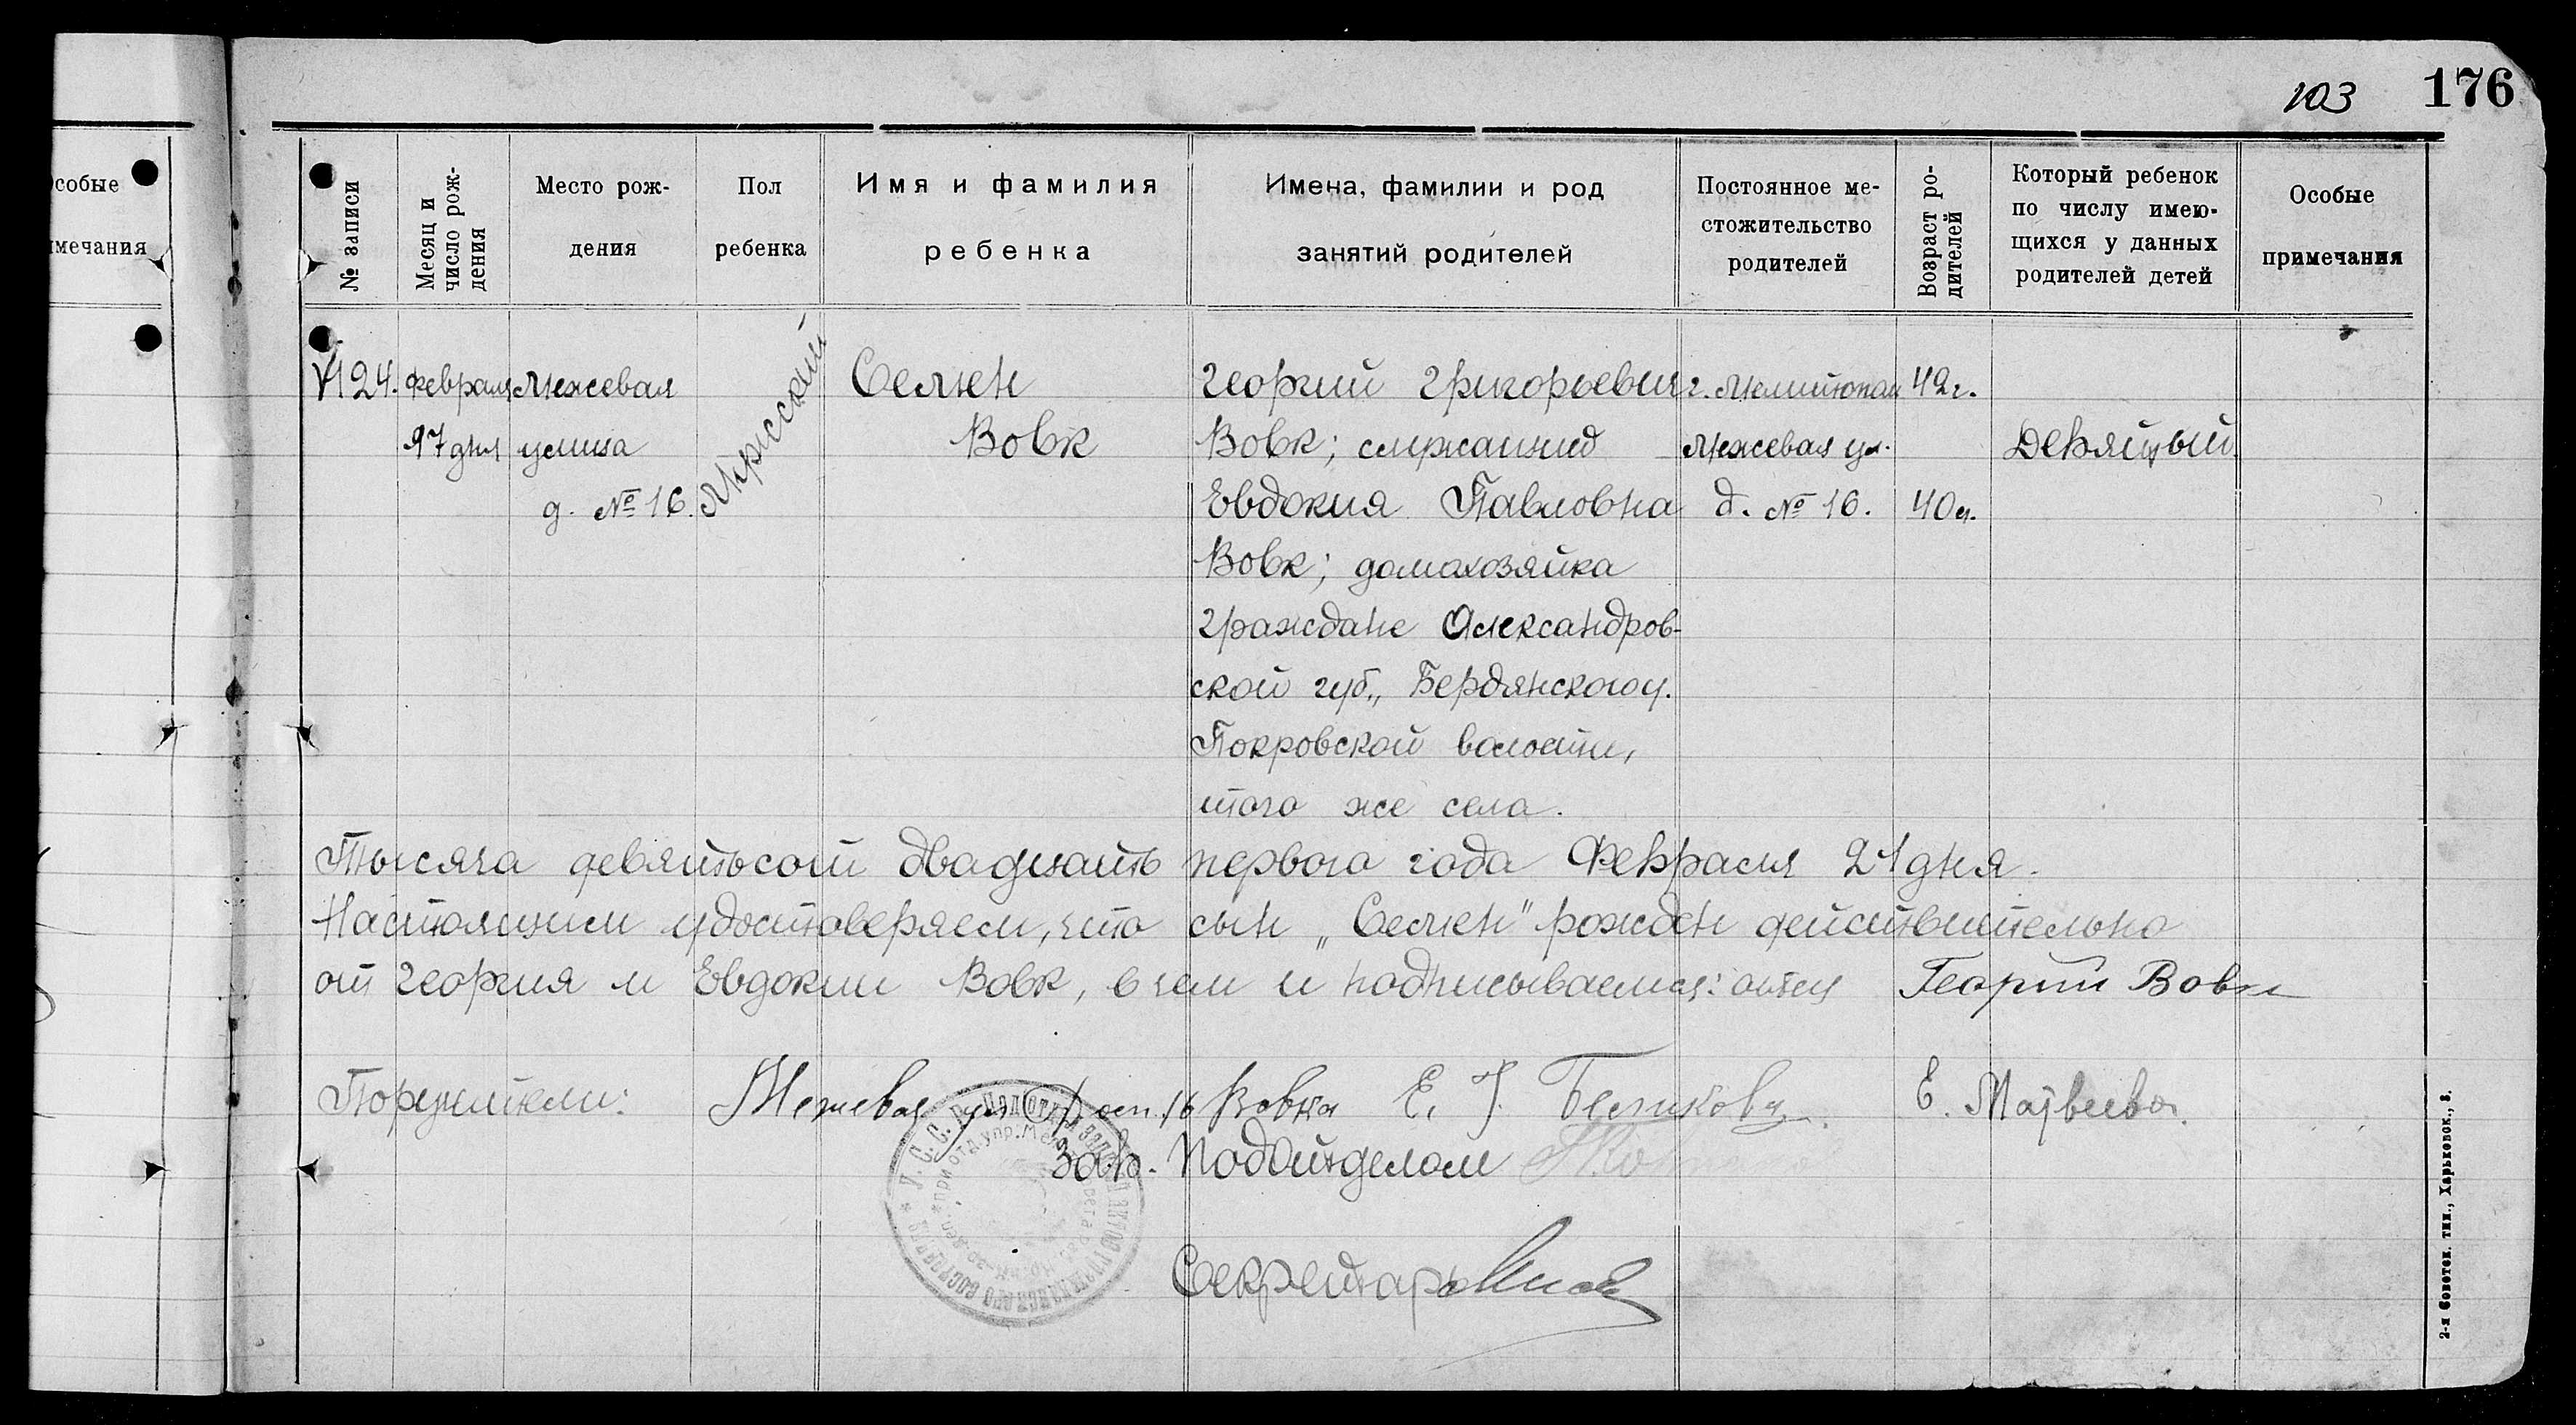 103 176
собые
мечания
№ записи
Месяц и число рождения
Место рождения
Пол ребенка
Имя и фамилия ребенка
Имена, фамилии и род занятий родителей
Постоянное местожительство родителей
Возраст родителей
Который ребенок по числу имеющихся у данных родителей детей
Особые примечания
124. Февраля Межевая Мужской Семен Георгий Григорьевич г. Мелитополь 42 г.
17 дня улица Вовк Вовк; служащий Межевая ул. Девятый
д. № 16. Евдокия Павловна д. № 16. 40 л.
Вовк; домахозяйка
граждане Александров-
ской губ., Бердянского у.
Покровской волости,
того же села.
Тысяча девятьсот двадцать первого года Февраля 21 дня.
Настоящим удостоверяем, что сын „Семен" рожден действительно
от Георгия и Евдокии Вовк, в чем и подписываемся: отец Георгий Вовк
Поручители: Межевая ул. 16 Вовка Е. Беликова. Е. Матвеева.
Завѣ. Подотделом
Секретарь
2-я Советск. тип., Харьковск., 8.